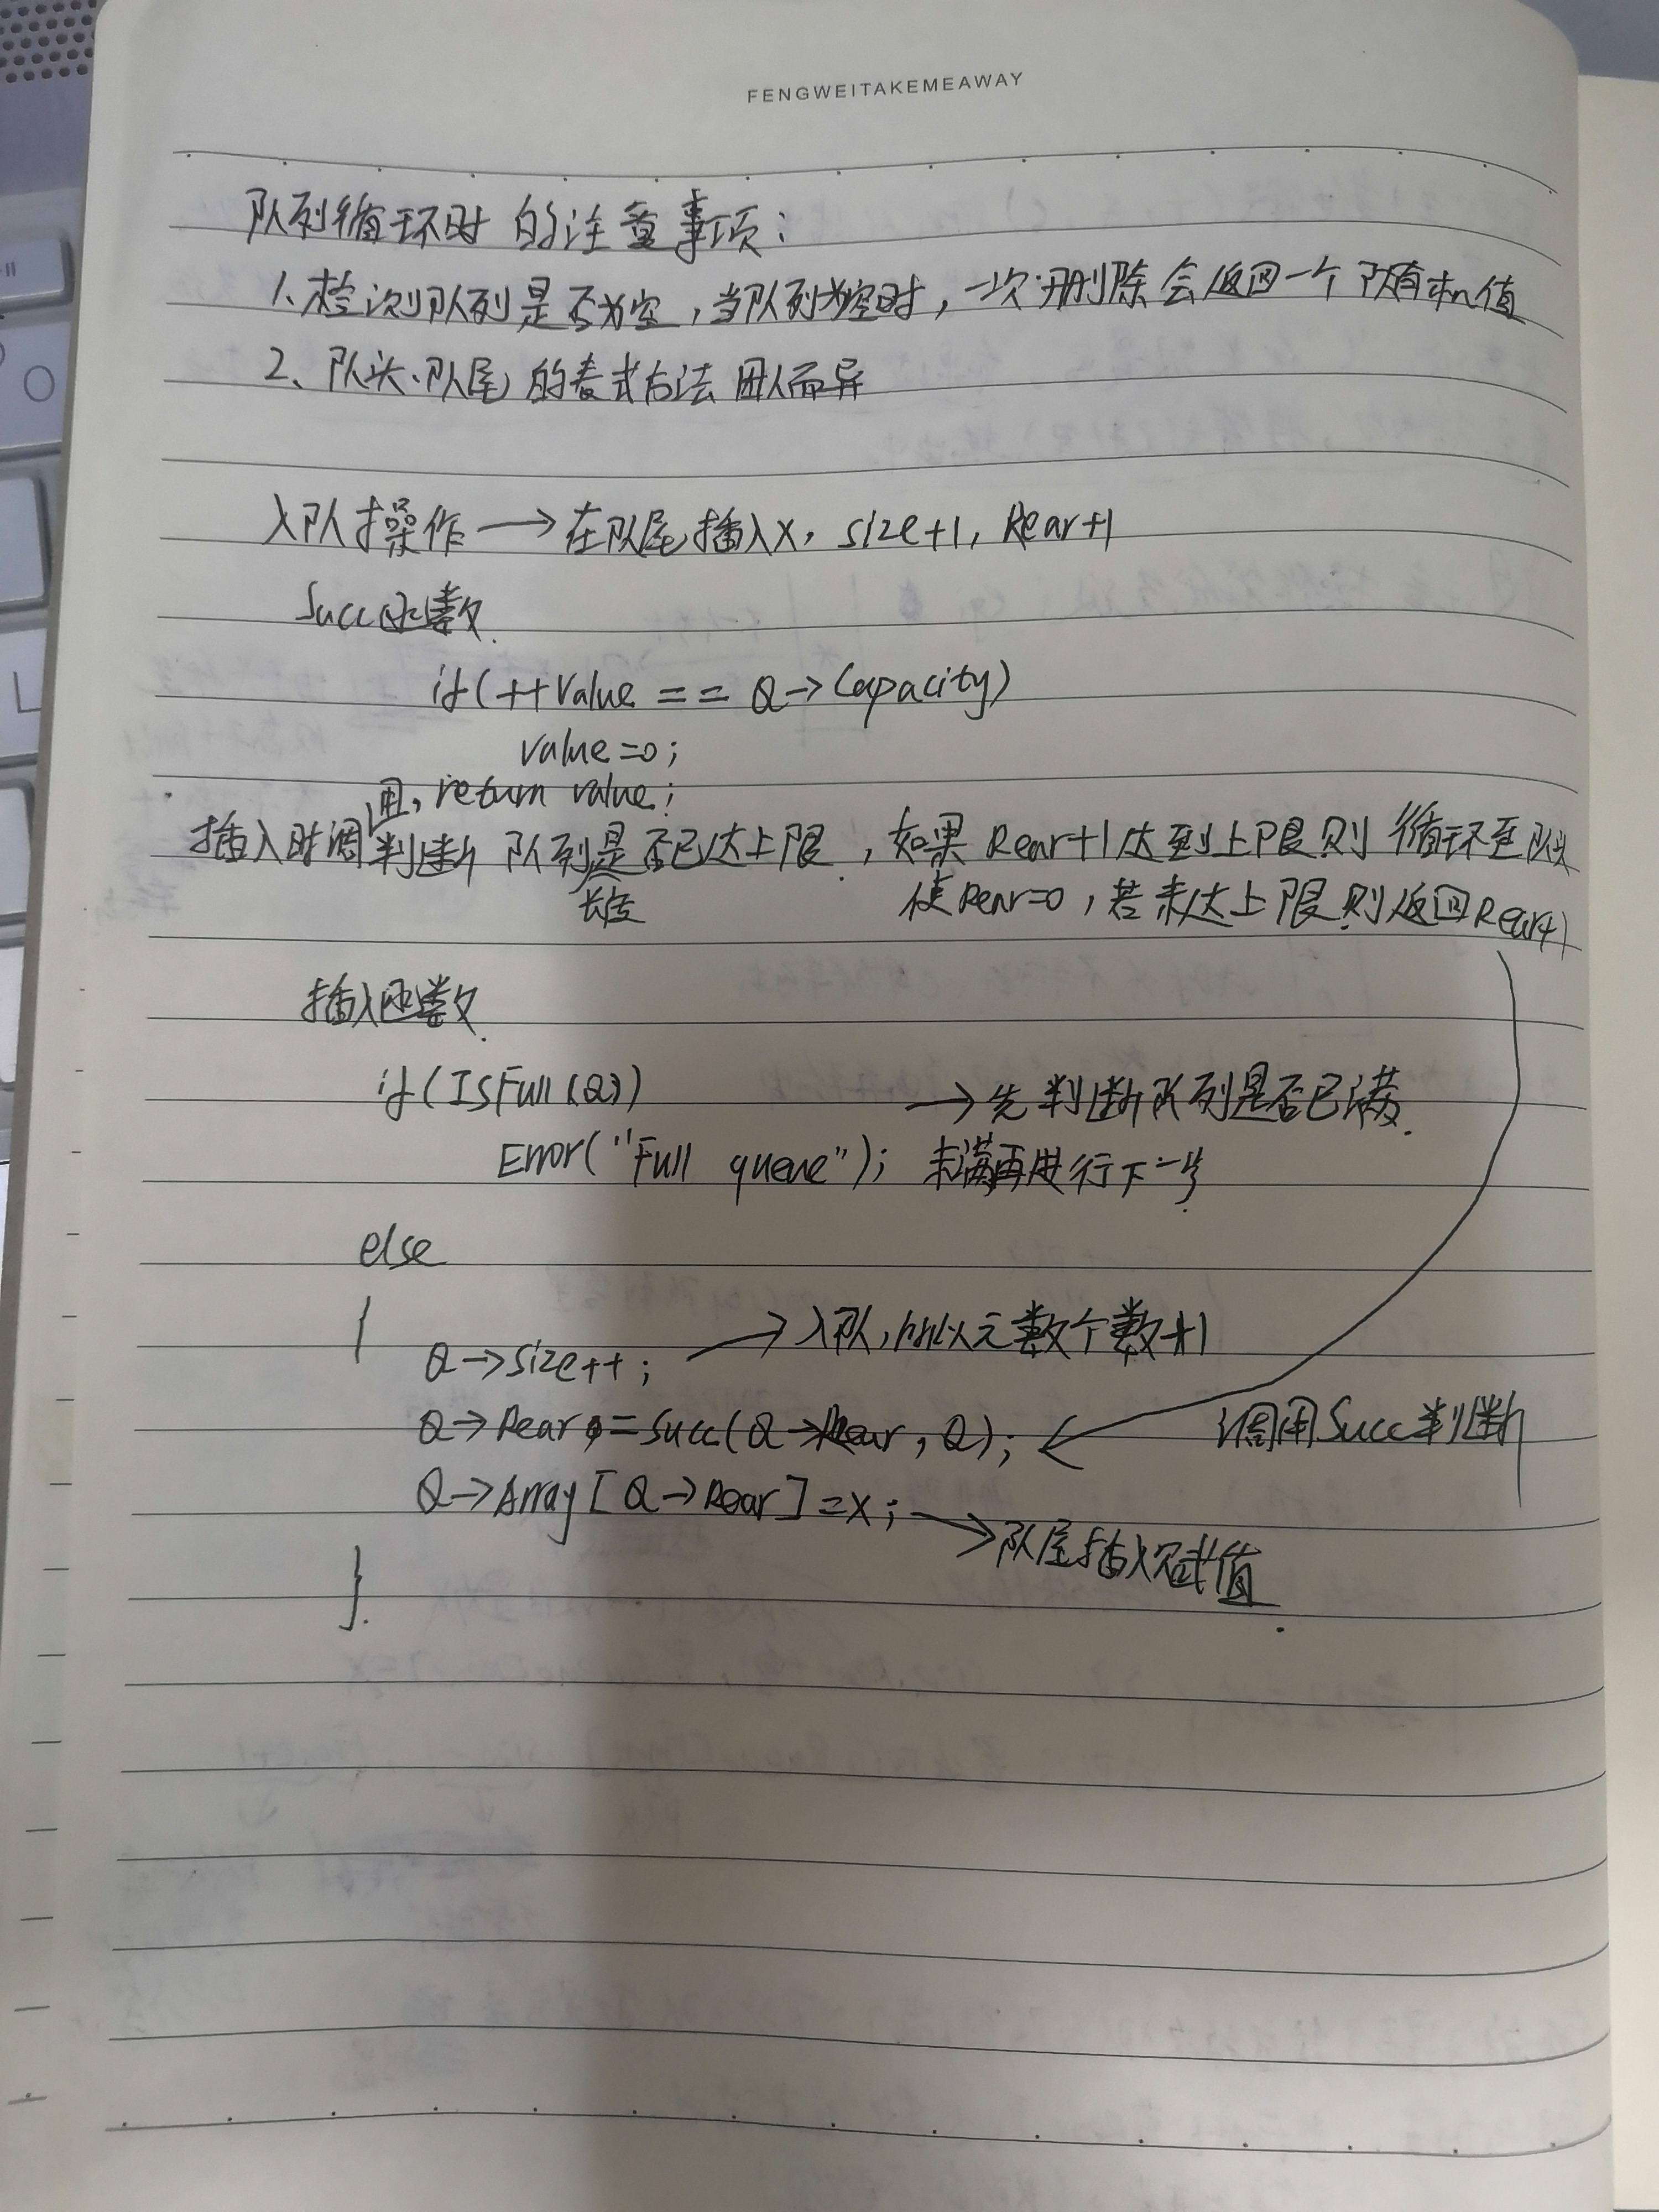 FENGWEITAKEMEAWAY
队列循环时的注意事项:
1、检测队列是否为空,当队列为空时,一次删除会返回一个隐含和值
2、队头、队尾的表式方法因人而异
入队操作→在队尾插入X, size+1, Rear+1
Succ函数
if(++Value == Q→Capacity)
value=0;
return value;
插入时调用,判断队列长度是否已达上限,如果Rear+1达到上限则循环至队头
使Rear=0,若未达上限则返回Rear+1
插入函数
if(IsFull(Q)) →先判断队列是否已满
Error("Full queue"); 未满再进行下一步
else
{
Q→Size++; →入队,所以元数个数+1
Q→Rear=Succ(Q→Rear, Q); 调用Succ判断
Q→Array[Q→Rear]=X; →队尾插入赋值
}